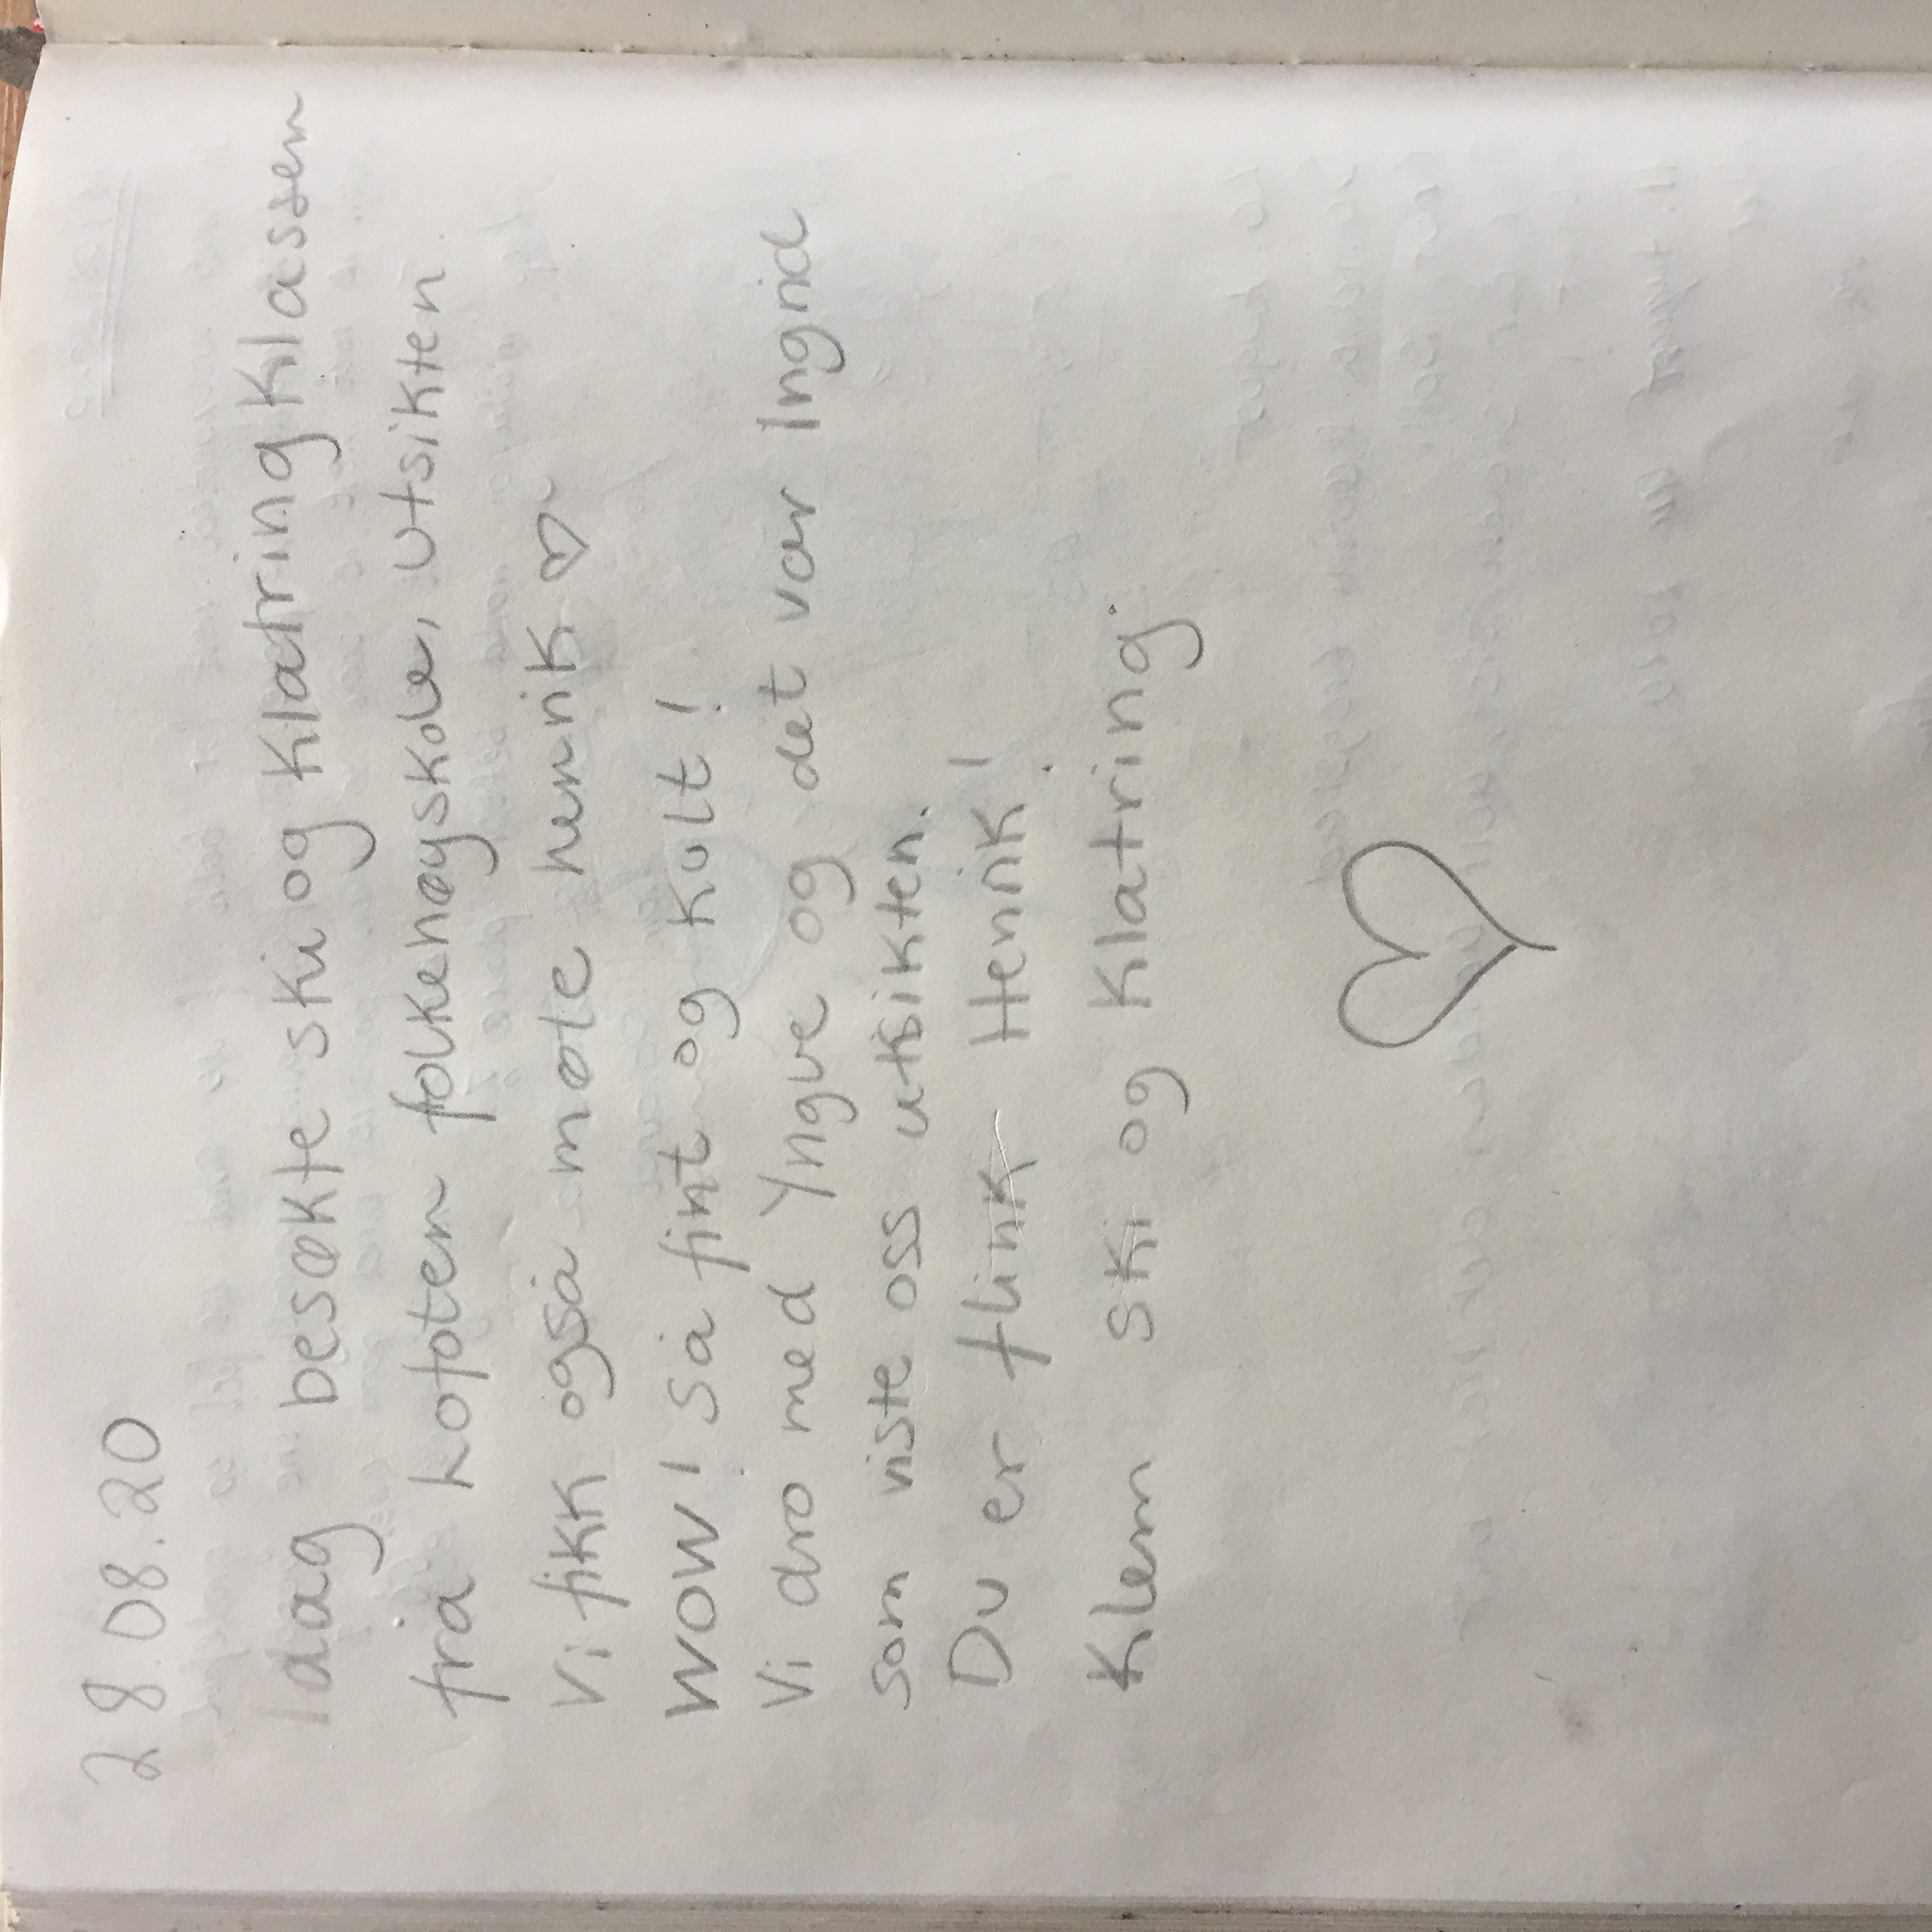 28.08.20
Idag besøkte ski og klatring klassen
fra Lofoten folkehøyskole, utsikten
Vi fikk også møte henrik ♡
WOW! Så fint og kult!
Vi dro med Yngve og det var Ingrid
som viste oss utsikten.
Du er flink Henrik!
Klem ski og klatring.